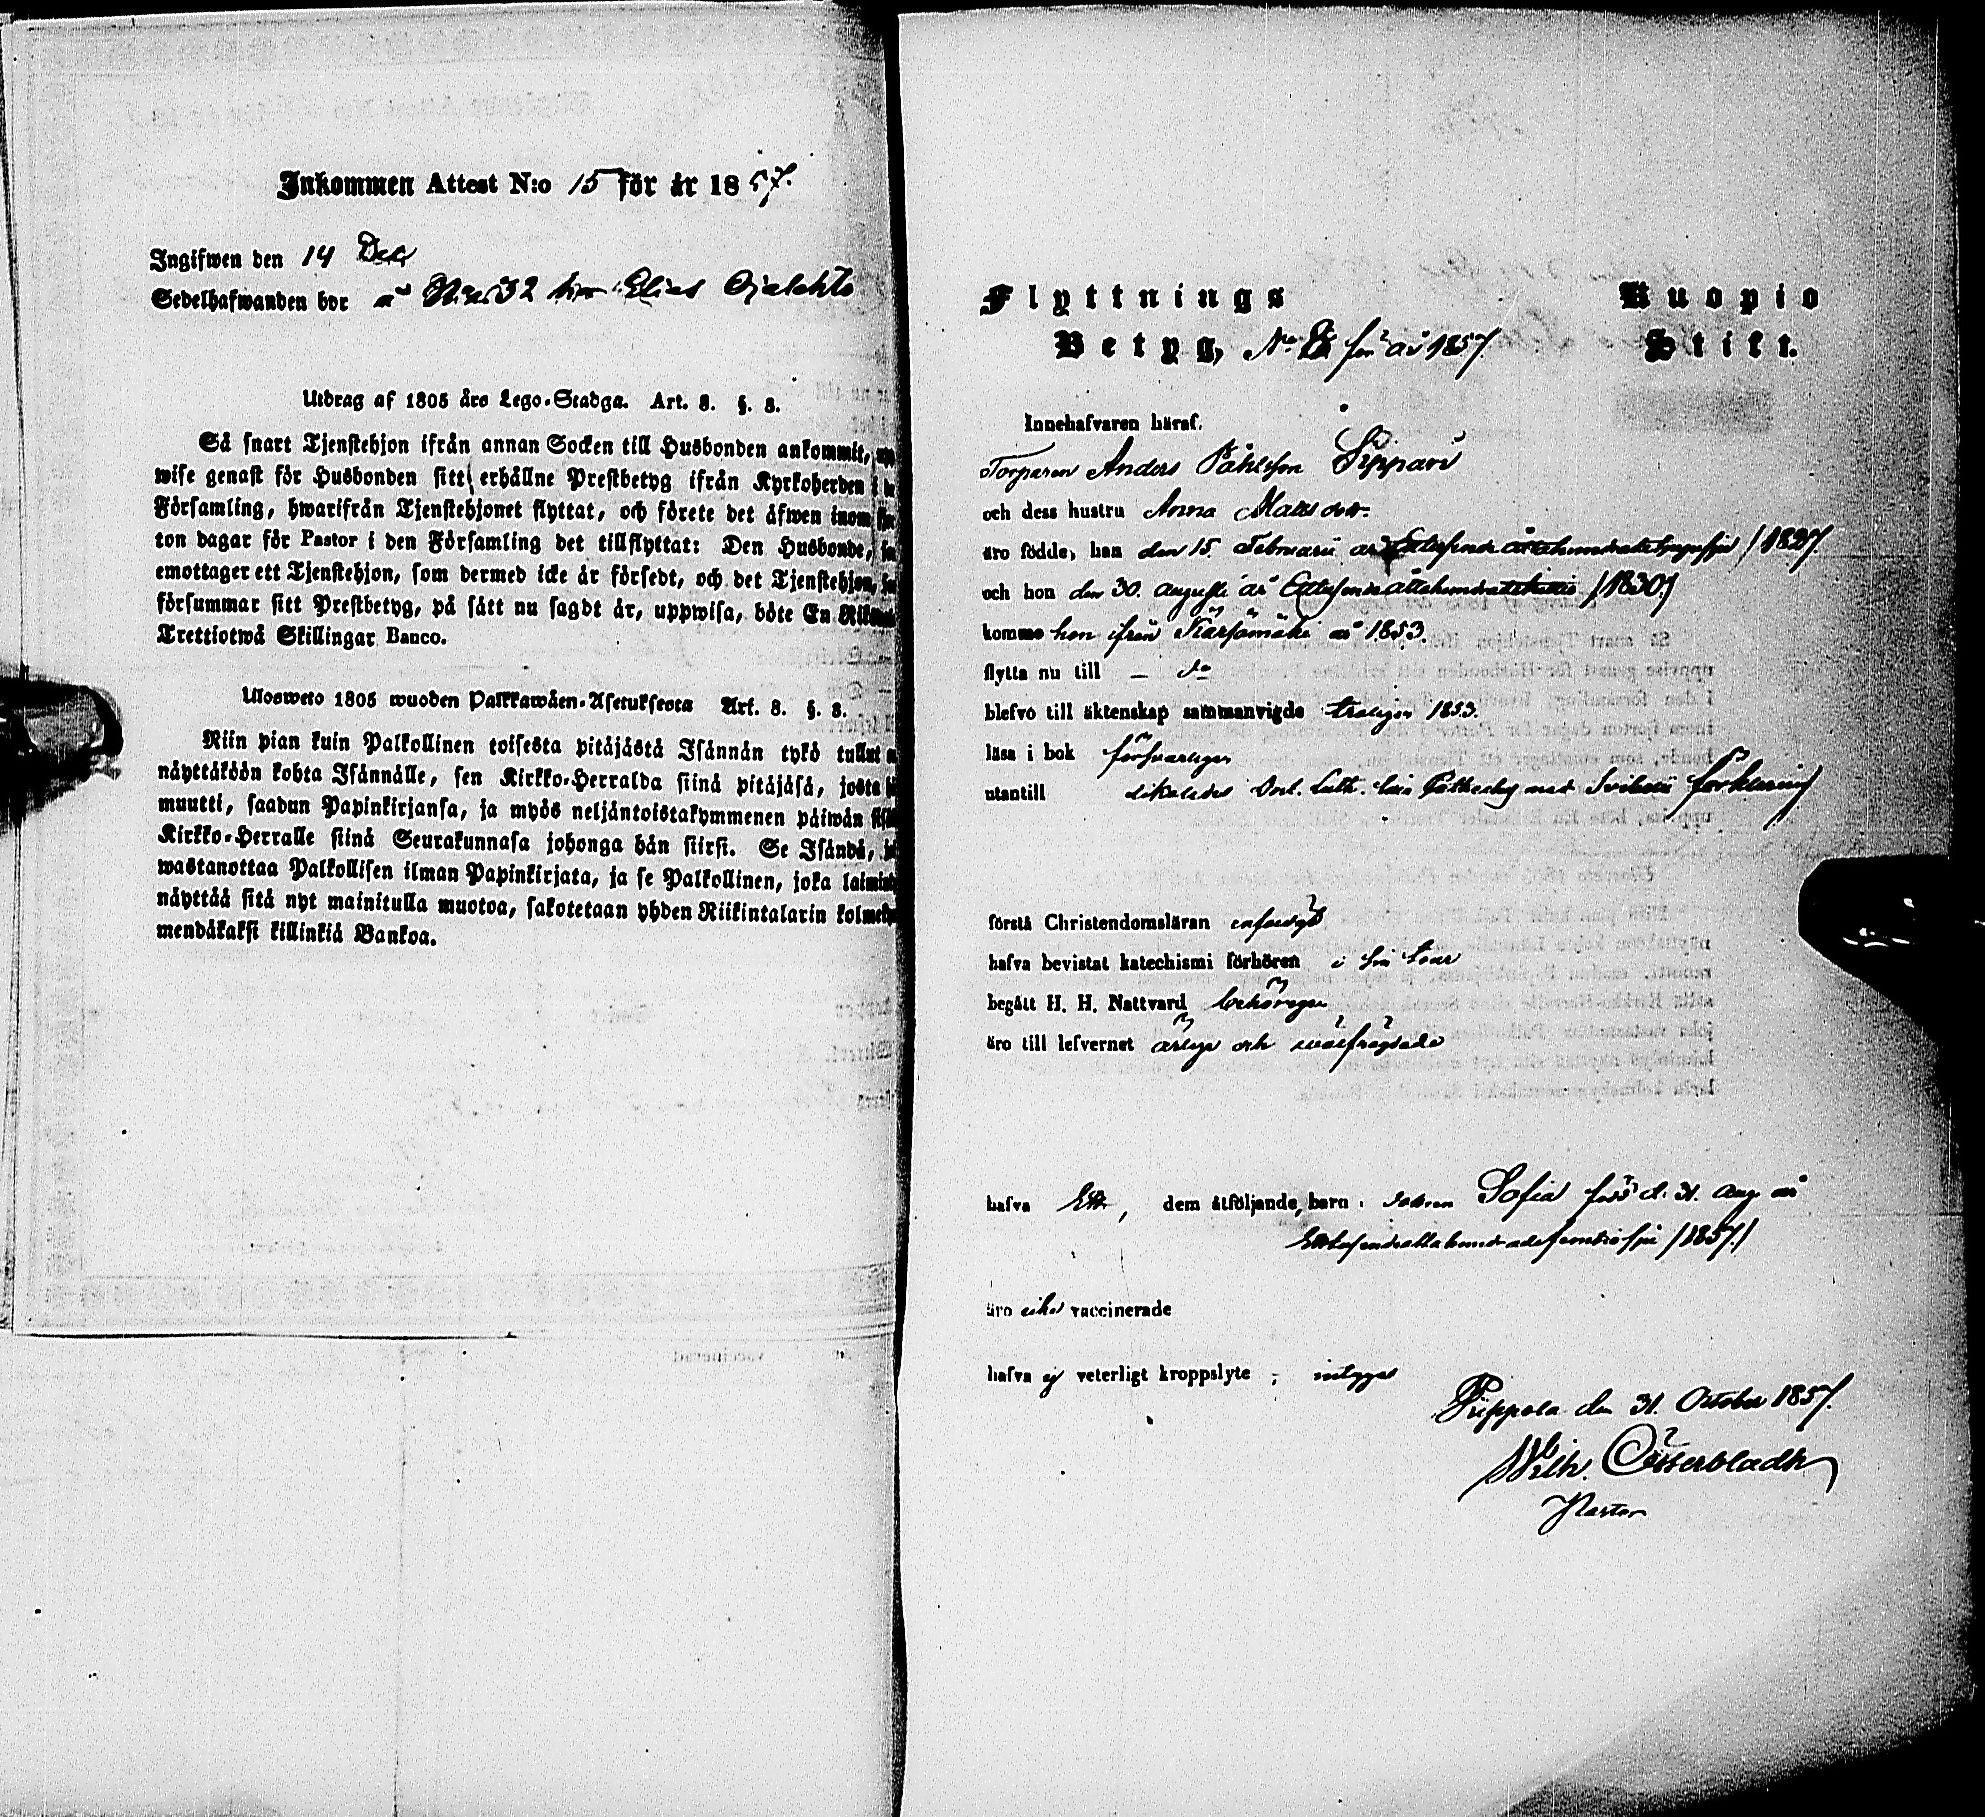 Inkommen Attest N:o 15 för år 1857.
Ingifwen den 14 Dec
Sedelhafwanden bor å N:o 32 hos Elias Ojalehto
Utdrag af 1805 års Lego-Stadga. Art. 8. §. 8.
Så snart Tjenstehjon ifrån annan Socken till Husbonden ankommit,
wise genast för Husbonden sitt erhållne Prestbetyg ifrån Kyrkoherden i
Församling, hwarifrån Tjenstehjonet flyttat, och förete det äfwen inom
ton dagar för Pastor i den Församling det tillflyttat: Den Husbonde,
emottager ett Tjenstehjon, som dermed icke är försedt, och det Tjenstehjon,
försummar sitt Prestbetyg, på sätt nu sagdt är, uppwisa, böte En
Trettiotwå Skillingar Banco.
Ulosweto 1805 wuoden Palkkawäen-Asetuksesta Art. 8. §. 8.
Niin pian kuin Palkollinen toisesta pitäjästä Isännän tykö tullut
näyttäköön kohta Isännälle, sen Kirkko-Herralda siinä pitäjäsä, josta
muutti, saadun Papinkirjansa, ja myös neljäntoistakymmenen päiwän
Kirkko-Herralle siinä Seurakunnasa johonga hän siirsi. Se Isändä,
wastanottaa Palkollisen ilman Papinkirjata, ja se Palkollinen, joka
näyttää sitä nyt mainitulla muotoa, sakotetaan yhden Riikintalarin
mendäkaksi killinkiä Bankoa.
Flyttnings Kuopio
Betyg, No för år 1857 Stift.
Innehafvaren häraf,
Torparen Anders Påhlsson Sippari
och dess hustru Anna Matts dotr.
äro födde, han den 15. Februarii år Ettusende åttahundratjugusju /1827/
och hon den 30. augusti år Ettusende åttahundratrettio /1830/
komme hon ifrån Kärsämäki år 1853.
flytta nu till — do
blefvo till äktenskap sammanvigde troligen 1853.
läsa i bok försvarligen
utantill likaledes Doct. Luth. lilla Catheches med Svibelii förklaring
förstå Christendomsläran enfaldigt
hafva bevistat katechismi förhören i sin tour
begått H. H. Nattvard behörigen
äro till lefvernet ärlige och wälfrägdade
hafva Ett, dem åtföljande, barn, dottren Sofia född d. 31. Aug. år
Ettusendeåttahundradefemtiosju /1857/
äro vaccinerade
hafva ej veterligt kroppslyte; intygas
Pippola den 31. October 1857.
Wilh. Österbladh
Pastor